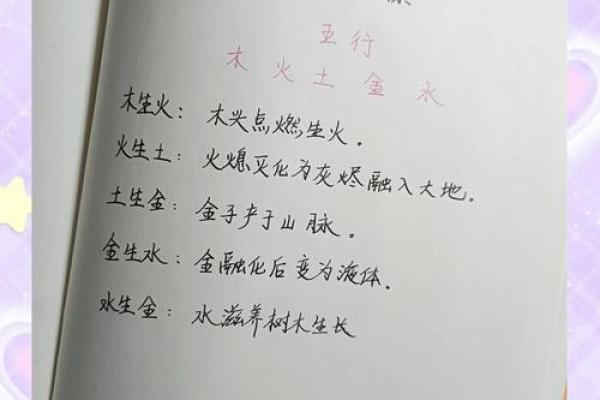 五行
木火土金水
木生火：木头点燃生火。
火生土：火熄灭化为灰烬融入大地。
土生金：金子产于山脉。
金生水：金融化后变为液体。
水生金：水滋养树木生长